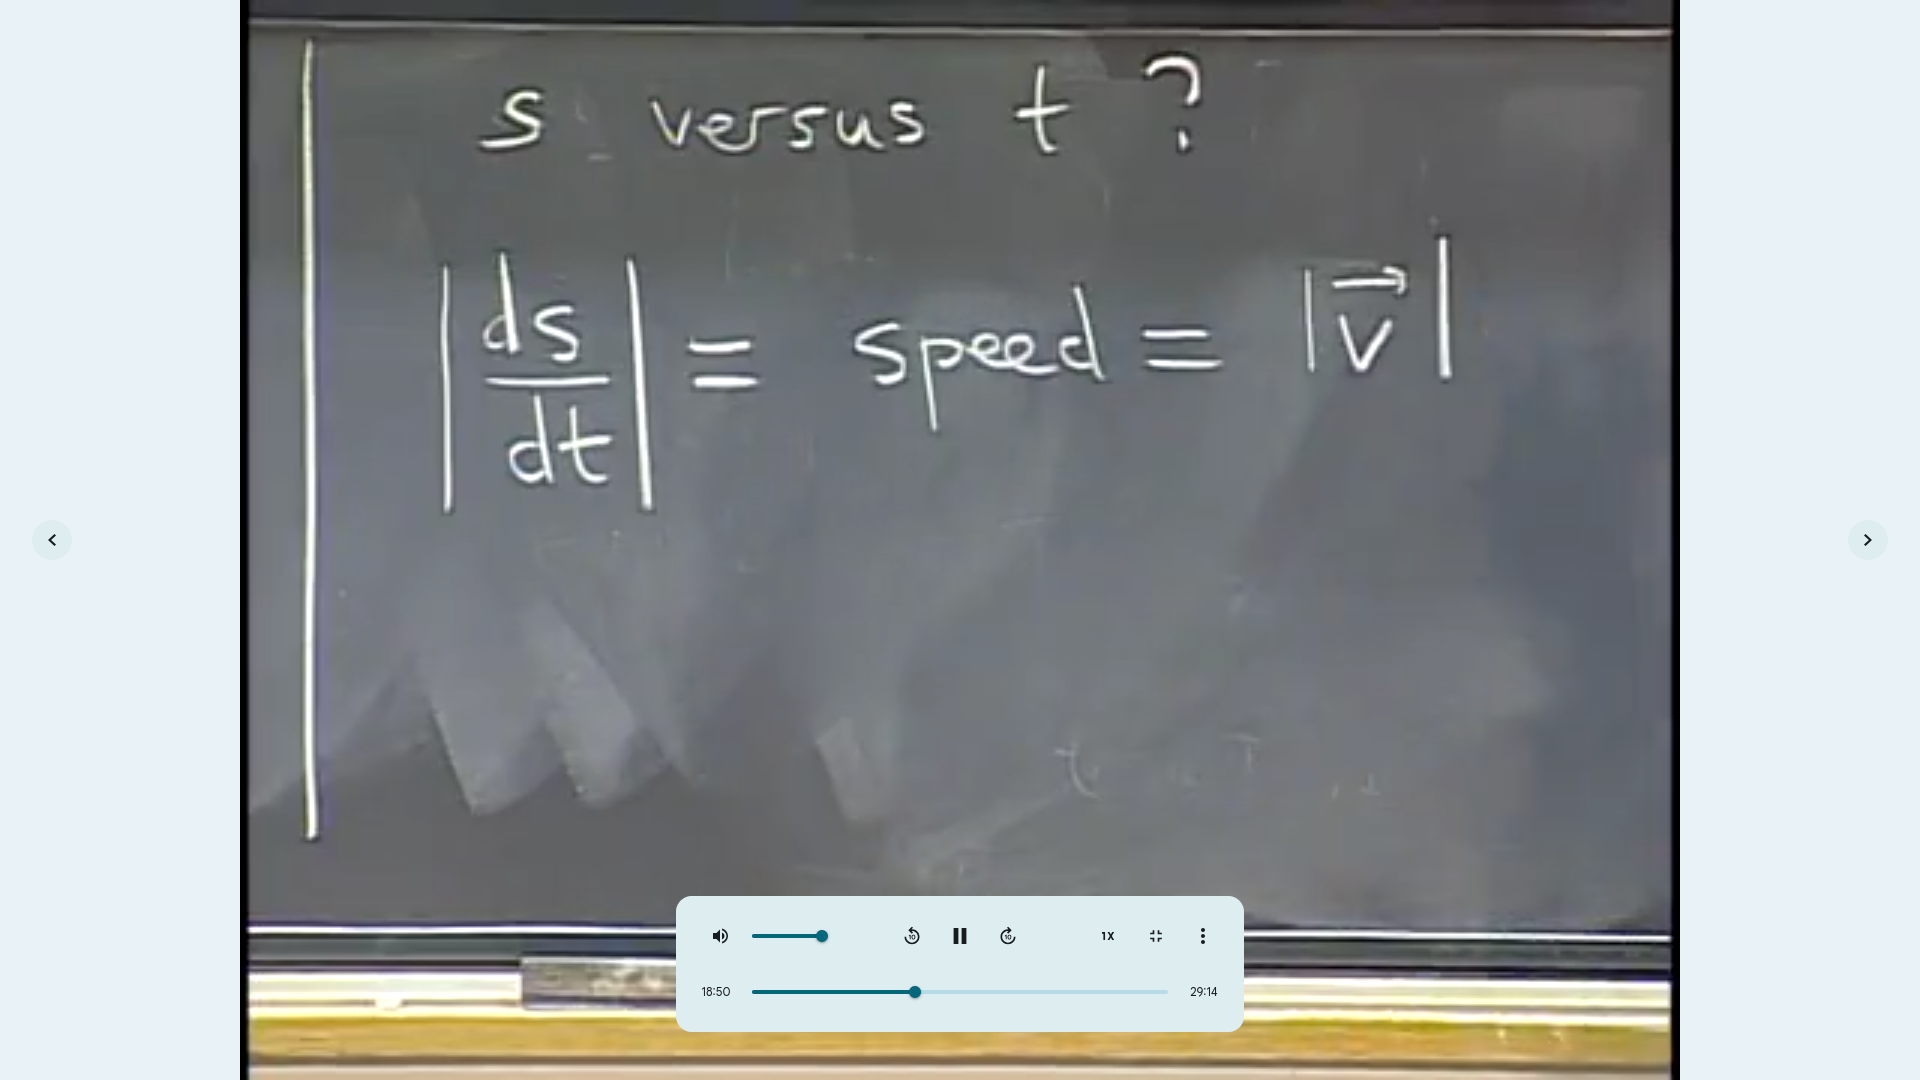 s versus t ?
|ds/dt| = speed = |v⃗|
1X
18:50 29:14